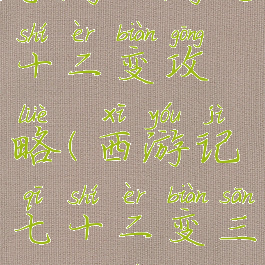 shí èr biàn gōng
十二变攻
lüè xī yóu jì
略(西游记
qī shí èr biàn sān
七十二变三